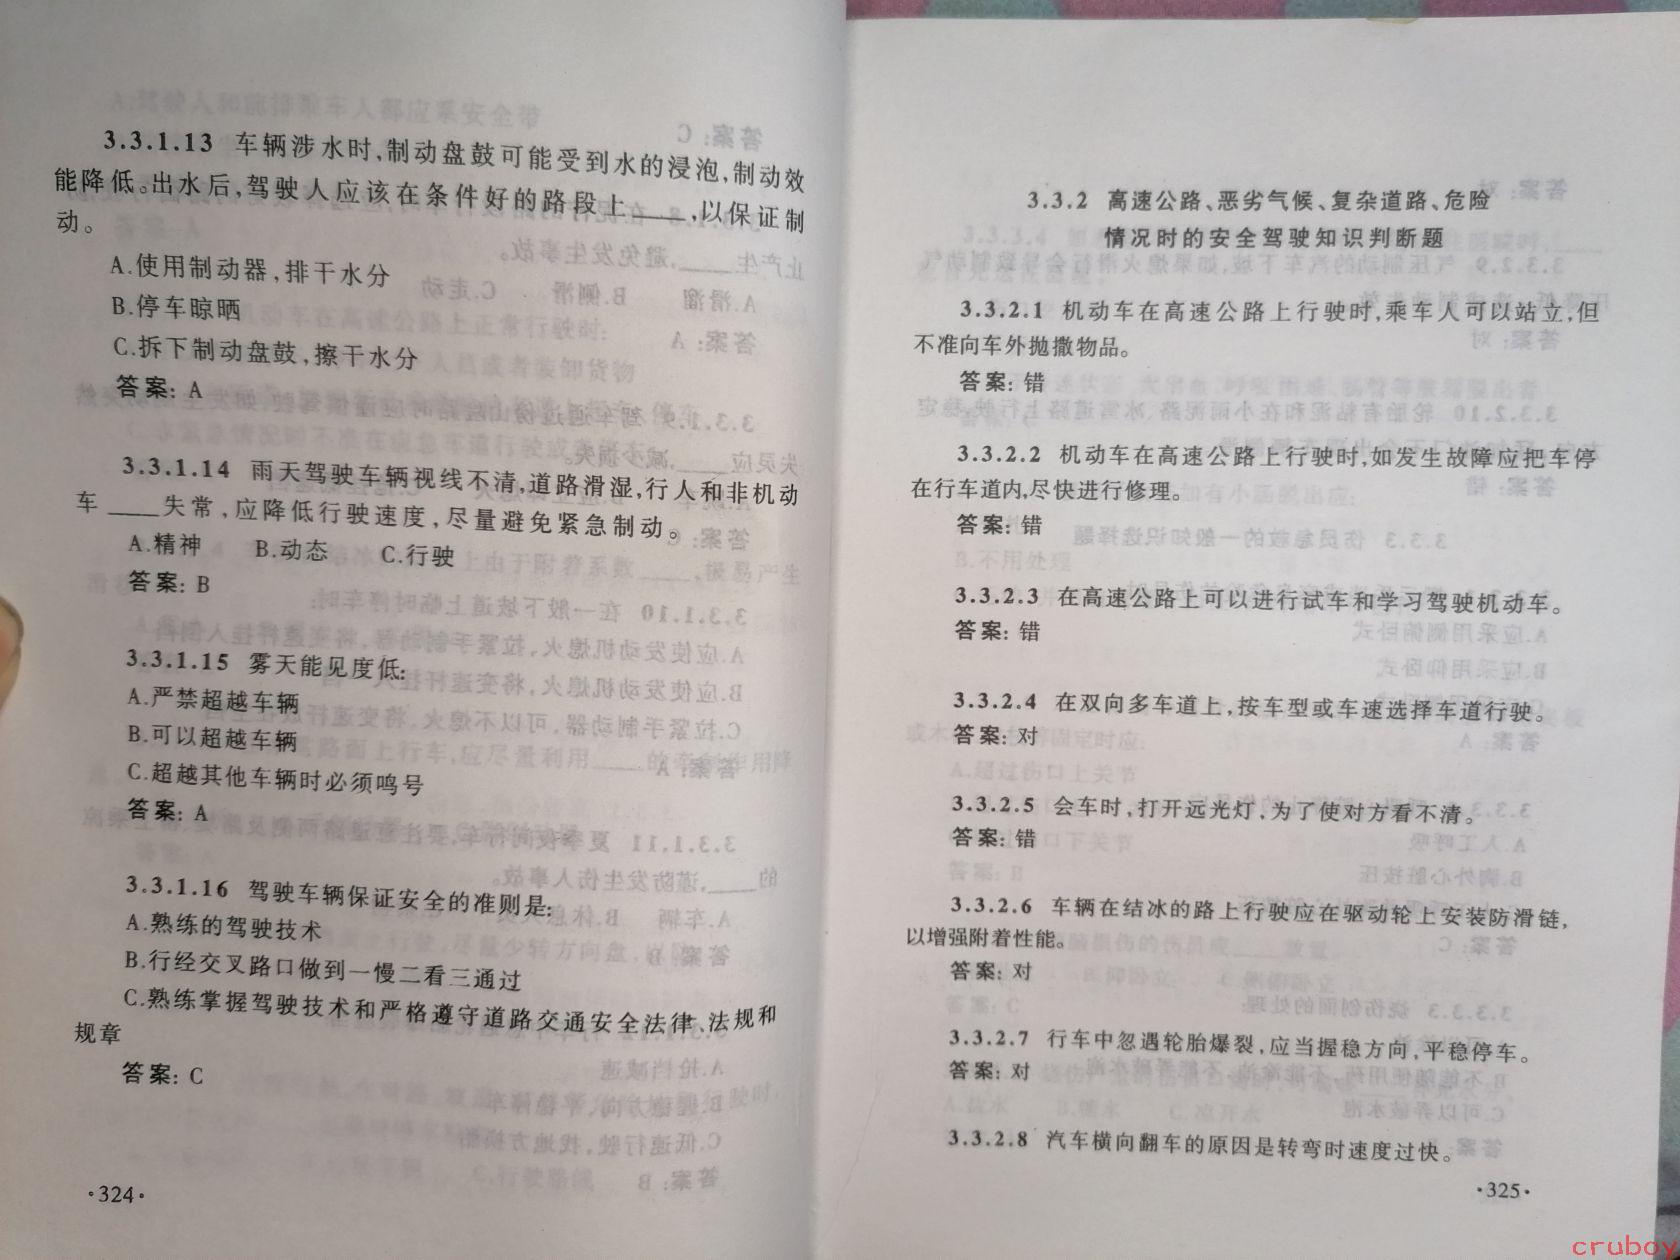 3.3.1.13 车辆涉水时,制动盘鼓可能受到水的浸泡,制动效
能降低。出水后,驾驶人应该在条件好的路段上____,以保证制
动。
A.使用制动器,排干水分
B.停车晾晒
C.拆下制动盘鼓,擦干水分
答案: A
3.3.1.14 雨天驾驶车辆视线不清,道路滑湿,行人和非机动
车____失常,应降低行驶速度,尽量避免紧急制动。
A.精神 B.动态 C.行驶
答案: B
3.3.1.15 雾天能见度低:
A.严禁超越车辆
B.可以超越车辆
C.超越其他车辆时必须鸣号
答案: A
3.3.1.16 驾驶车辆保证安全的准则是:
A.熟练的驾驶技术
B.行经交叉路口做到一慢二看三通过
C.熟练掌握驾驶技术和严格遵守道路交通安全法律、法规和
规章
答案: C
·324·
3.3.2 高速公路、恶劣气候、复杂道路、危险
情况时的安全驾驶知识判断题
3.3.2.1 机动车在高速公路上行驶时,乘车人可以站立,但
不准向车外抛撒物品。
答案: 错
3.3.2.2 机动车在高速公路上行驶时,如发生故障应把车停
在行车道内,尽快进行修理。
答案: 错
3.3.2.3 在高速公路上可以进行试车和学习驾驶机动车。
答案: 错
3.3.2.4 在双向多车道上,按车型或车速选择车道行驶。
答案: 对
3.3.2.5 会车时,打开远光灯,为了使对方看不清。
答案: 错
3.3.2.6 车辆在结冰的路上行驶应在驱动轮上安装防滑链,
以增强附着性能。
答案: 对
3.3.2.7 行车中忽遇轮胎爆裂,应当握稳方向,平稳停车。
答案: 对
3.3.2.8 汽车横向翻车的原因是转弯时速度过快。
·325·
cruboy